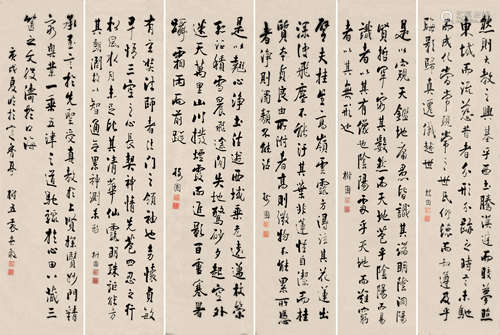 然則大教之興基乎西土騰漢庭而皎夢照
東域而流慈昔者分形分跡之時言未馳
而成化當常現常之世民仰德而知遵及乎
晦影歸真遷儀越世
是以窺天鑑地庸愚皆識其端明陰洞陽
賢哲罕窮其數然而天地苞乎陰陽而易
識者以其有像也陰陽處乎天地而難窮
者以其無形也
譬夫桂生高嶺雲露方得泫其花蓮出
淥波飛塵不能汙其葉非蓮性自潔而桂
質本貞良由所附者高則微物不能累所憑
者淨則濁類不能沾
是以翹心淨土法遊西域乘危遠邁杖策
孤征積雪晨飛途間失地驚砂夕起空外
迷天萬里山川撥煙霞而進影百重寒暑
躡霜雨而前蹤
有玄奘法師者法門之領袖也幼懷貞敏
早悟三空之心長契神情先苞四忍之行
松風水月未足比其清華仙露明珠詎能方
其朗潤故以智通無累神測未形
承至言於先聖受真教於上賢探賾妙門精
窮奧業一乘五律之道馳驟於心田八藏三
篋之文波濤於口海
庚戌夏